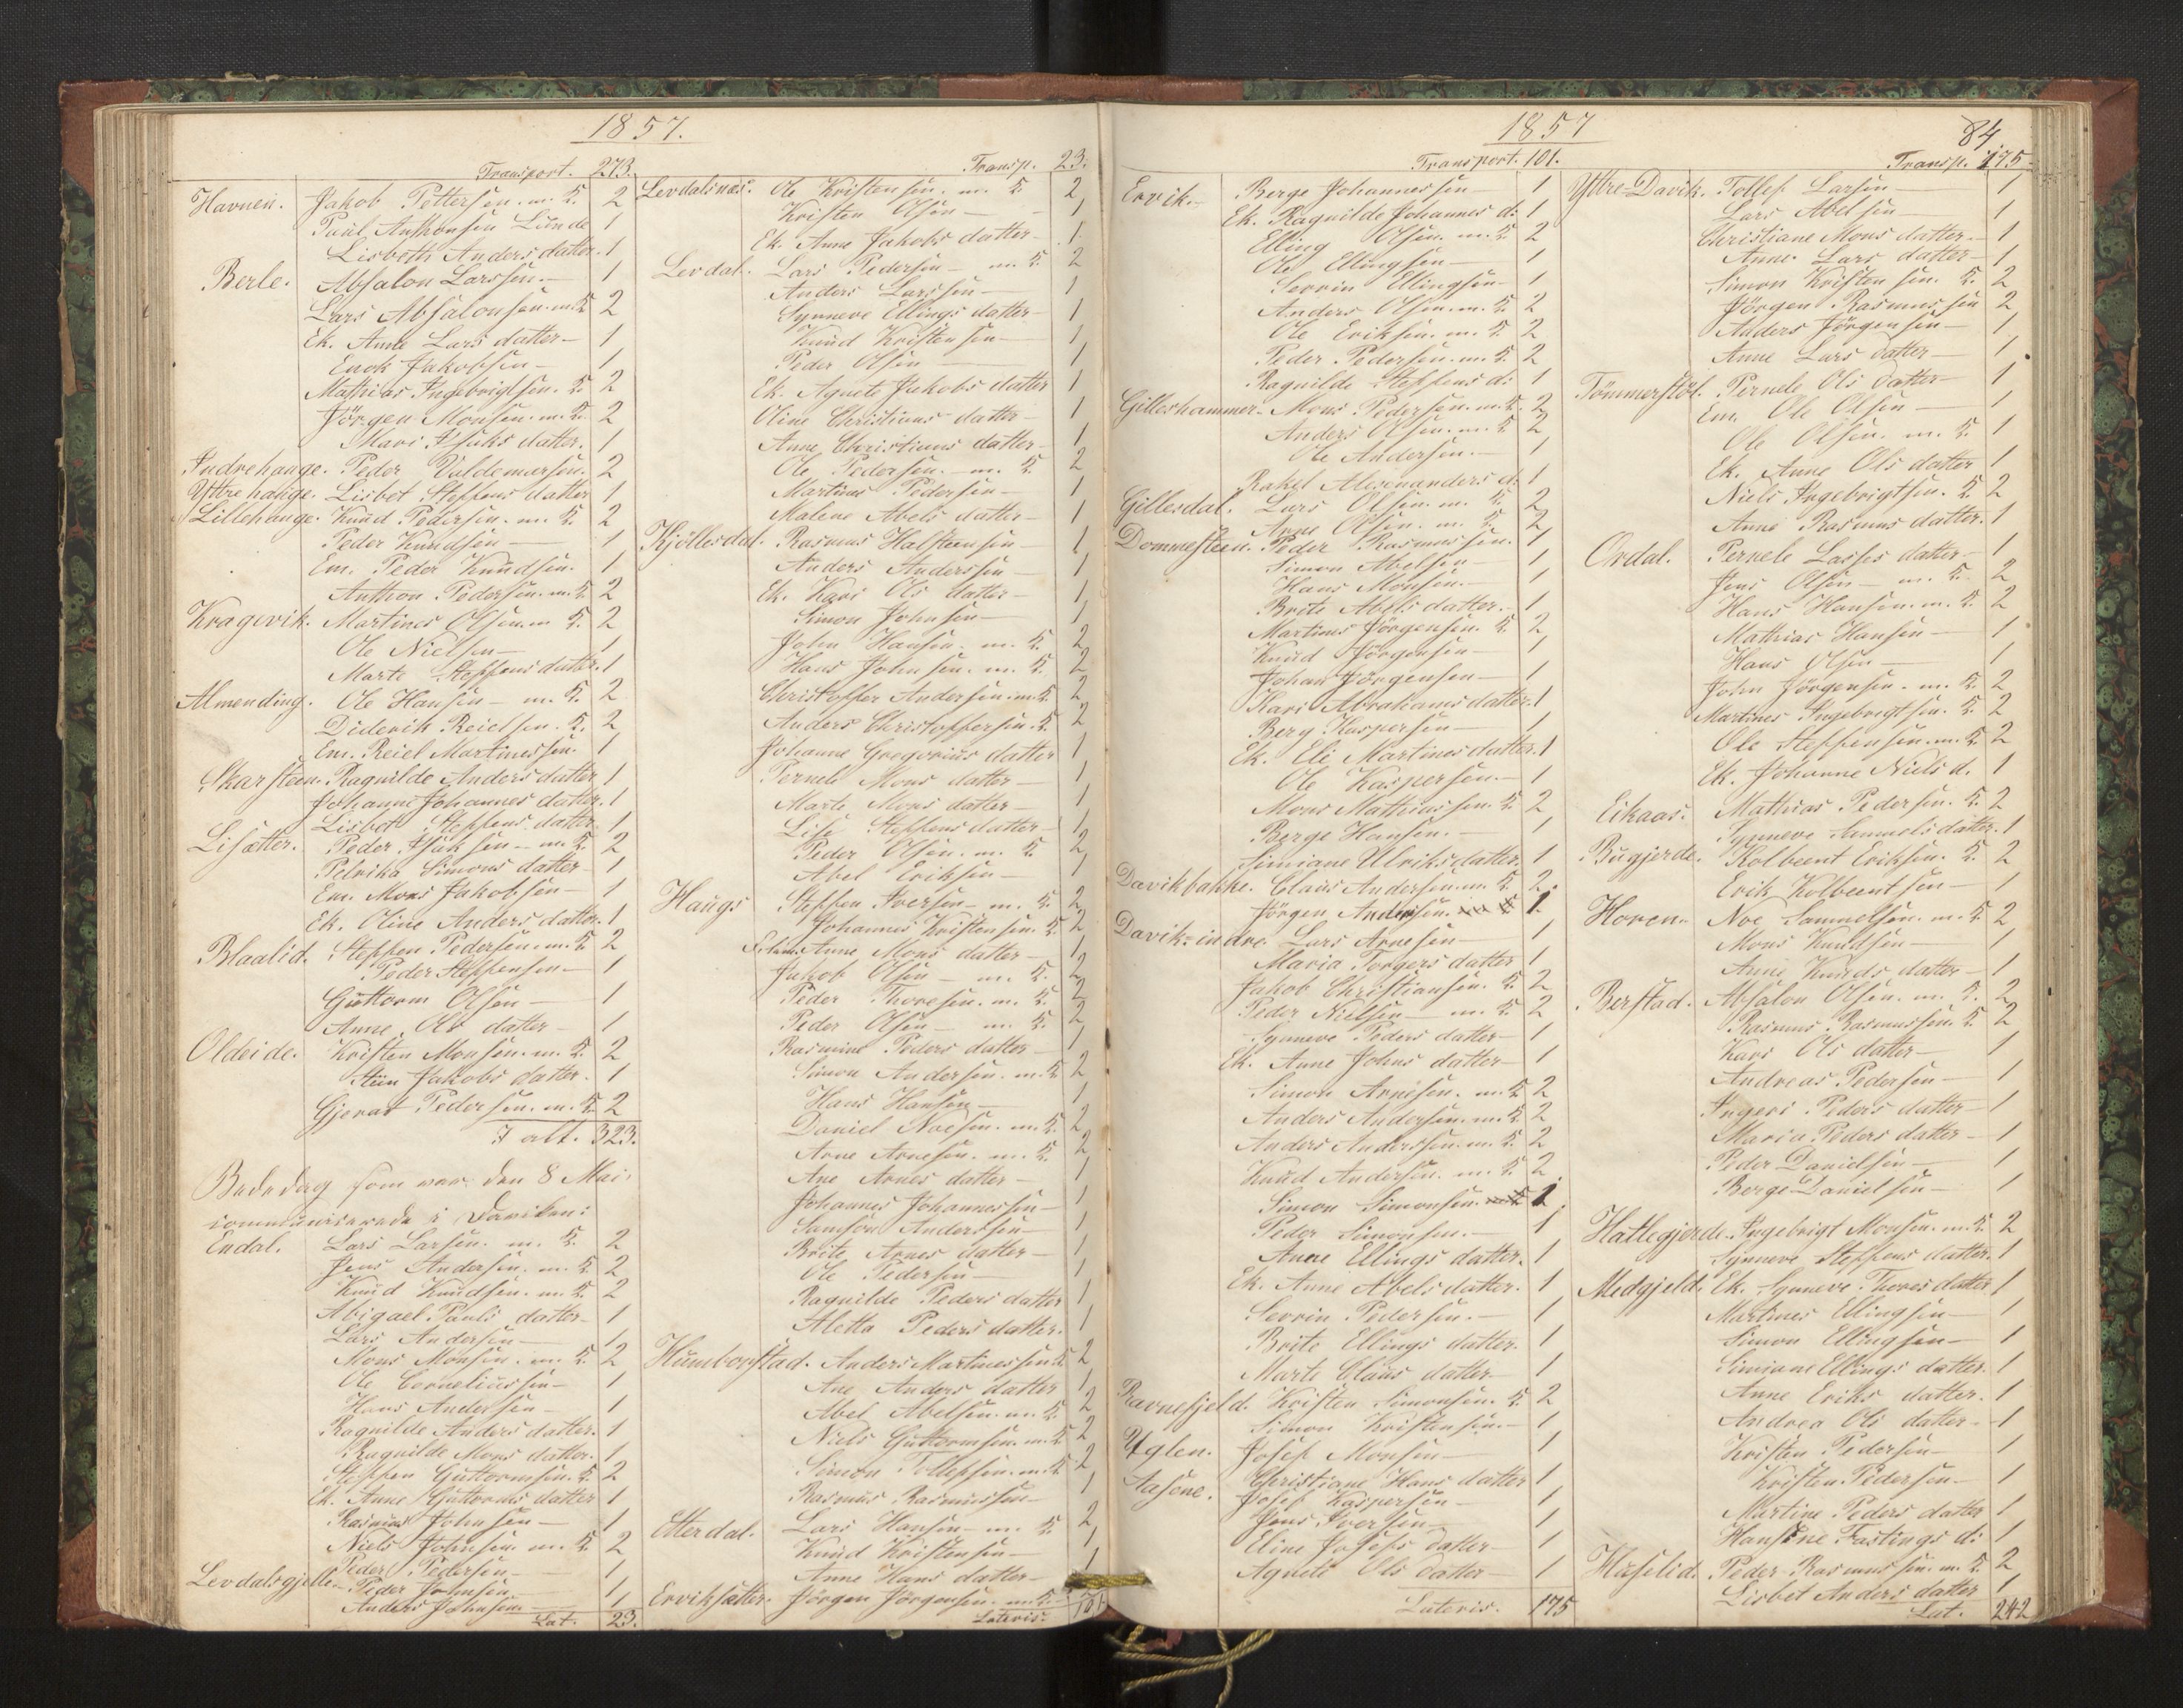 1857.
Transport. 273.
Havnen. Jakob Pettersen. m. K. 2
Paul Anthonsen Lunde 1
Lisbeth Anders datter. 1
Berle. Absalon Larssen. 1
Lars Absalonsen. m. K 2
Ek. Anne Lars datter 1
Enok Jakobsen 1
Mathias Ingebrigtsen. K. 2
Jörgen Monsen. m. K. 2
Mari Isaks datter. 1
Indrehauge. Peder Valdemarsen. 2
Yttrehauge. Lisbet Steffens datter 1
Lillehauge. Knud Pedersen. m. K. 2
Peder Knudsen 1
Em. Peder Knudsen. 1
Anthon Pedersen. m. K. 2
Kragevik. Martines Olsen. m K. 2
Ole Nielsen 1
Marte Steffens datter. 1
Almending. Ole Hansen m. K. 2
Diderik Reielsen. K. 2
Em. Reiel Martinessen. 1
Skarsteen. Ragnilde Anders datter 1
Johanne Johannes datter. 1
Lisbet Steffens datter 1
Lisætter. Peder Isaksen m. K. 2
Petrika Simons datter 1
Em. Mons Jakobsen 1
Ek. Oline Anders datter. 1
Blaalid. Steffen Pedersen. m. K 2
Peder Steffensen 1
Guttorm Olsen 1
Anne Ols datter 1
Oldeide. Kristen Monsen. m. K. 2
Jakobs datter. 1
Gjerar Pedersen. m. K. 2
I alt. 323.
Bededag som var den 8 Mai.
communiserede i Daviken:
Endal. Lars Larsen. m. K. 2
Jens Andersen. m. K 2
Knud Knudsen. m. K. 2
Abigael Pauls datter 1
Lars Andersen 1
Mons Monsen. m. K. 2
Ole Corneliussen 1
Hans Andersen 1
Ragnilde Anders datter. 1
Ragnilde Mons datter. 1
Steffen Guttormsen. K. 2
Ek. Anne Guttorms datter 1
Rasmus Johnsen 1
Niels Johnsen. m. K. 2
Peder Pedersen 1
Levdalsgjelle. Peder Johnsen 1
Anders Johnsen 1
Lat. 23.
Transp. 23.
Levdalsnæs. Ole Kristensen. m. K. 2
Kristen Olsen 1
Ek. Anne Jakobs datter 1
Levdal. Lars Pedersen m. K. 2
Anders Larssen 1
Synneve Ellings datter 1
Knud Kristensen 1
Peder Olsen 1
Ek. Agnete Jakobs datter 1
Oline Christians datter 1
Anne Christians datter 1
Ole Pedersen. m. K. 2
Martines Pedersen 1
Malene Abels datter 1
Kjöllesdal. Rasmus Halsteensen 1
Anders Anderssen 1
Ek. Kari Ols datter 1
Simon Johnsen 1
John Hansen. m. K. 2
Hans Johnsen. m. K. 2
Christoffer Andersen. m. K 2
Anders Christoffersen. K. 2
Johanne Gregorius datter 1
Pernele Mons datter 1
Marte Mons datter 1
Lise Steffens datter 1
Peder Olsen. m. K. 2
Abel Eriksen 1
Haugs Steffen Iversen m. K. 2
Johannes Kristensen. K 2
Anne Mons datter 1
Jakob Olsen m. K. 2
Peder Thoresen. m. K. 2
Peder Olsen m. K. 2
Rasmine Peders datter 1
Simon Andersen. m. K 2
Hans Hansen 1
Daniel Noesen. m. K. 2
Arne Arnesen. m. K. 2
Ane Arnes datter 1
Johannes Johannessen 1
Samson Anderssen 1
Brite Arnes datter 1
Ole Pedersen 1
Ragnilde Peders datter 1
Aletta Peders datter. 1
Humborstad. Anders Martinessen. K 2
Ane Anders datter 1
Abel Abelsen. m. K. 2
Niels Guttormsen. m. K. 2
Simon Tollefsen. m. K. 2
Rasmus Rasmussen 1
Etterdal. Lars Hansen m. K. 2
Knud Kristensen 1
Anne Hans datter 1
Erviksætter. Jörgen Jörgensen. m. K.
Lateris. 101
1857
84
Transport. 101.
Ervik. Berge Johannessen 1
Ek. Ragnilde Johannes d: 1
Elling Olsen. m. K. 2
Ole Ellingsen 1
Severin Ellingsen 1
Anders Olsen. m. K. 2
Ole Eriksen. m. K. 2
Peder Pedersen. m. K. 2
Ragnilde Steffens d: 1
Gilleshammer. Mons Pedersen. m. K. 2
Anders Olsen. m. K 2
Ole Andersen. 1
Rakel Alexanders d: 1
Gillesdal. Lars Olsen. m. K. 2
Arne Olsen. m. K. 2
Dommesteen. Peder Rasmussen. 1
Simon Abelsen 1
Hans Monsen. 1
Brite Abels datter. 1
Martines Jörgensen. K. 2
Knud Jörgensen 1
Johan Jörgensen 1
Kari Abrahams datter. 1
Berg Kaspersen 1
Ek. Eli Martines datter. 1
Ole Kaspersen. 1
Mons Mathiassen. K. 2
Berge Hansen. 1
Simiane Ulriks datter. 1
Davikbakke. Claus Andersen. m. K. 2.
Jörgen Andersen. m. K 1.
Davik-indre. Lars Arnesen 1
Maria Torgers datter 1
Jakob Christiansen. K. 2
Peder Nielsen m. K. 2
Synneve Peders datter 1
Ek. Anne Johns datter 1
Simon Arnesen. m. K. 2
Anders Andersen. m. K. 2
Anders Anderssen. m. K. 2
Knud Andersen. m. K. 2
Simon Simonsen. m. K. 1
Peder Simonsen. 1
Anne Ellings datter. 1
Ek. Anne Abels datter. 1
Severin Pedersen. 1
Brite Ellings datter. 1
Marte Claus datter 1
Ravnefjeld. Kristen Simonsen. K. 2
Simon Kristensen. 1
Yglen. Josef Monsen 1
Aasene. Christiane Hans datter 1
Josef Kaspersen 1
Jens Iversen 1
Eline Josefs datter 1
Agnete Ols datter 1
Lateris. 175
Transp. 175
Yttre-Davik. Tollef Larsen 1
Lars Abelsen 1
Christiane Mons datter. 1
Anne Lars datter 1
Simon Kristensen. K. 2
Jörgen Rasmussen 2
Anders Jörgensen 1
Anne Lars datter 1
Tömmerstöl. Pernele Ols datter 1
Em. Ole Olsen 1
Ole Olsen. m. K. 1
Ek. Anne Ols datter 1
Niels Ingebrigtsen. K. 2
Anne Rasmus datter. 1
Ordal. Pernele Lasses datter 1
Jens Olsen m. K. 2
Hans Hansen. m. K. 2
Mathias Hansen 1
Hans Olsen 1
John Jörgensen. m. K. 2
Martines Ingebrigtsen. K. 2
Ole Steffensen. m. K. 2
Ek. Johanne Niels d. 1
Eikaas. Mathias Pedersen. K. 2
Synneve Samuels datter. 1
Bugjerde. Kolbeent Eriksen. K. 2
Erik Kolbeentsen 1
Hoven. Noe Samuelsen. m. K. 2
Mons Knudsen 1
Anne Knuds datter 1
Berstad. Absalon Olsen. m. K. 2
Rasmus Rasmussen. K. 2
Kari Ols datter 1
Andreas Pedersen 1
Ingeri Peders datter 1
Maria Peders datter 1
Peder Danielsen 1
Berge Danielsen 1
Hatlegjerde. Ingebrigt Monsen. m. K. 2
Synneve Steffens datter. 1
Medgjeld. Ek. Synneve Thores datter 1
Martines Ellingsen 1
Simon Ellingsen 1
Simiane Ellings datter. 1
Anne Eriks datter. 1
Andrea Ols datter 1
Kristen Pedersen 1
Kristen Pedersen 1
Martine Peders datter 1
Hansine Fastings d: 1
Huselid. Peder Rasmussen. m. K. 2
Lisbet Anders datter 1
Lat. 242